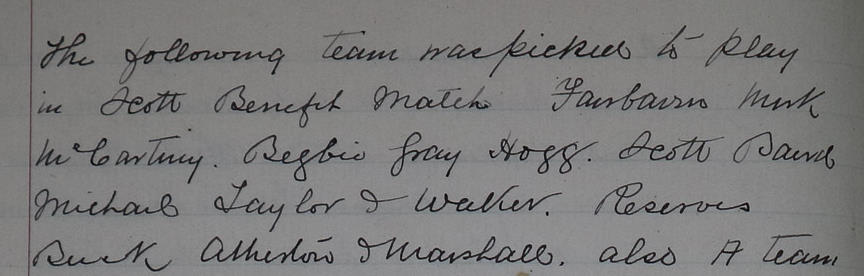 The following team was picked to play
in Scott Benefit Match Fairbairn Mirk
McCartney. Begbie Gray Hogg. Scott Baird
Michael Taylor & Walker. Reserves
Buck Atherton & Marshall. also A team